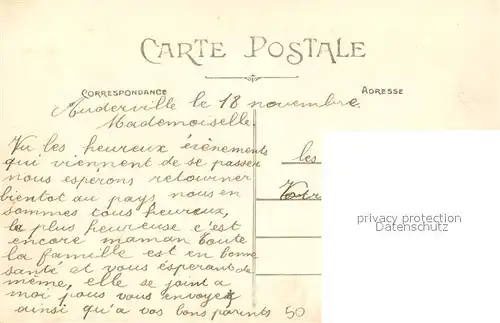 CARTE POSTALE
CORRESPONDANCE
ADRESSE
Auderville le 18 novembre.
Mademoiselle.
Vu les heureux évènements
qui viennent de se passer
nous espérons retourner
bientot au pays, nous en
sommes tous heureux,
la plus heureuse c'est
encore maman toute
la famille est en bonne
santé et vous éspérant de
même, elle se joint a
moi pous vous envoyez
ainsi qu'a vos bons parents
les
Votr
privacy protection
Datenschutz
50